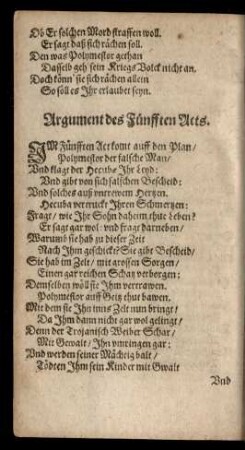 Ob Er solchen Mord straffen woll.
Er sagt daß sich rächen soll.
Den was Polymestor gethan
Dasselb geh sein Kriegs Volck nicht an.
Doch könn' sie sich rächen allein
So söll es Ihr erlaubet seyn.
Argument des Fünfften Acts.
IM Fünfften Act komt auff den Plan/
Polymestor der falsche Man/
Vnd klagt der Hecube Ihr Leyd:
Vnd gibt von sich falschen Bescheid:
Vnd solches auß vntrewem Hertzen.
Hecuba vertruckt Ihren Schmertzen:
Fragt/ wie Ihr Sohn daheim thue Leben?
Er sagt gar wol: vnd fragt darneben/
Warumb sie hab zu dieser Zeit
Nach Ihm geschickt? Sie gibt Bescheid/
Sie hab im Zelt/ mit grossen Sorgen/
Einen gar reichen Schatz verborgen:
Demselben wöll sie Ihm vertrawen.
Polymestor auff Geitz thut bawen.
Mit dem sie Ihn inns Zelt nun bringt/
Da Ihm dann nicht gar wol gelingt/
Denn der Trojanisch Weiber Schar/
Mit Gewalt/ Ihn vmringen gar:
Vnd werden seiner Mächtig balt/
Tödten Ihm sein Kinder mit Gwalt
Vnd